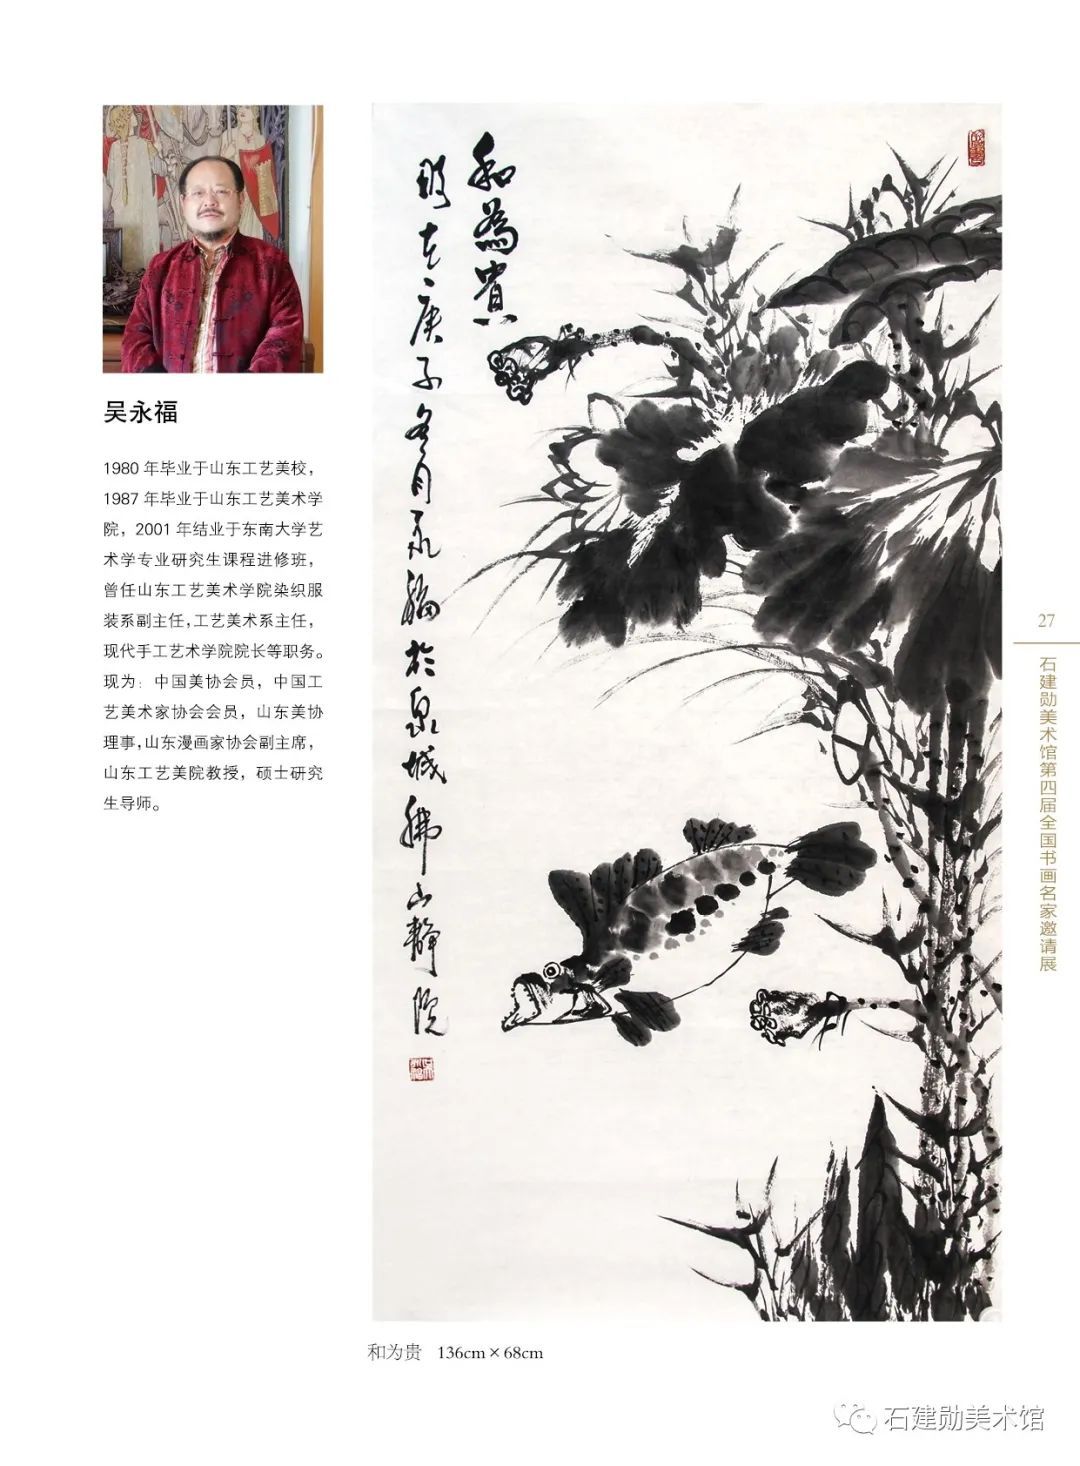 吴永福
1980 年毕业于山东工艺美校，
1987 年毕业于山东工艺美术学
院，2001 年结业于东南大学艺
术学专业研究生课程进修班，
曾任山东工艺美术学院染织服
装系副主任,工艺美术系主任，
现代手工艺术学院院长等职务。
现为：中国美协会员，中国工
艺美术家协会会员，山东美协
理事,山东漫画家协会副主席，
山东工艺美院教授，硕士研究
生导师。
和為貴
庚子冬月永福於泉城佛山靜院
和为贵 136cm×68cm
27
石建勋美术馆第四届全国书画名家邀请展
石建勋美术馆